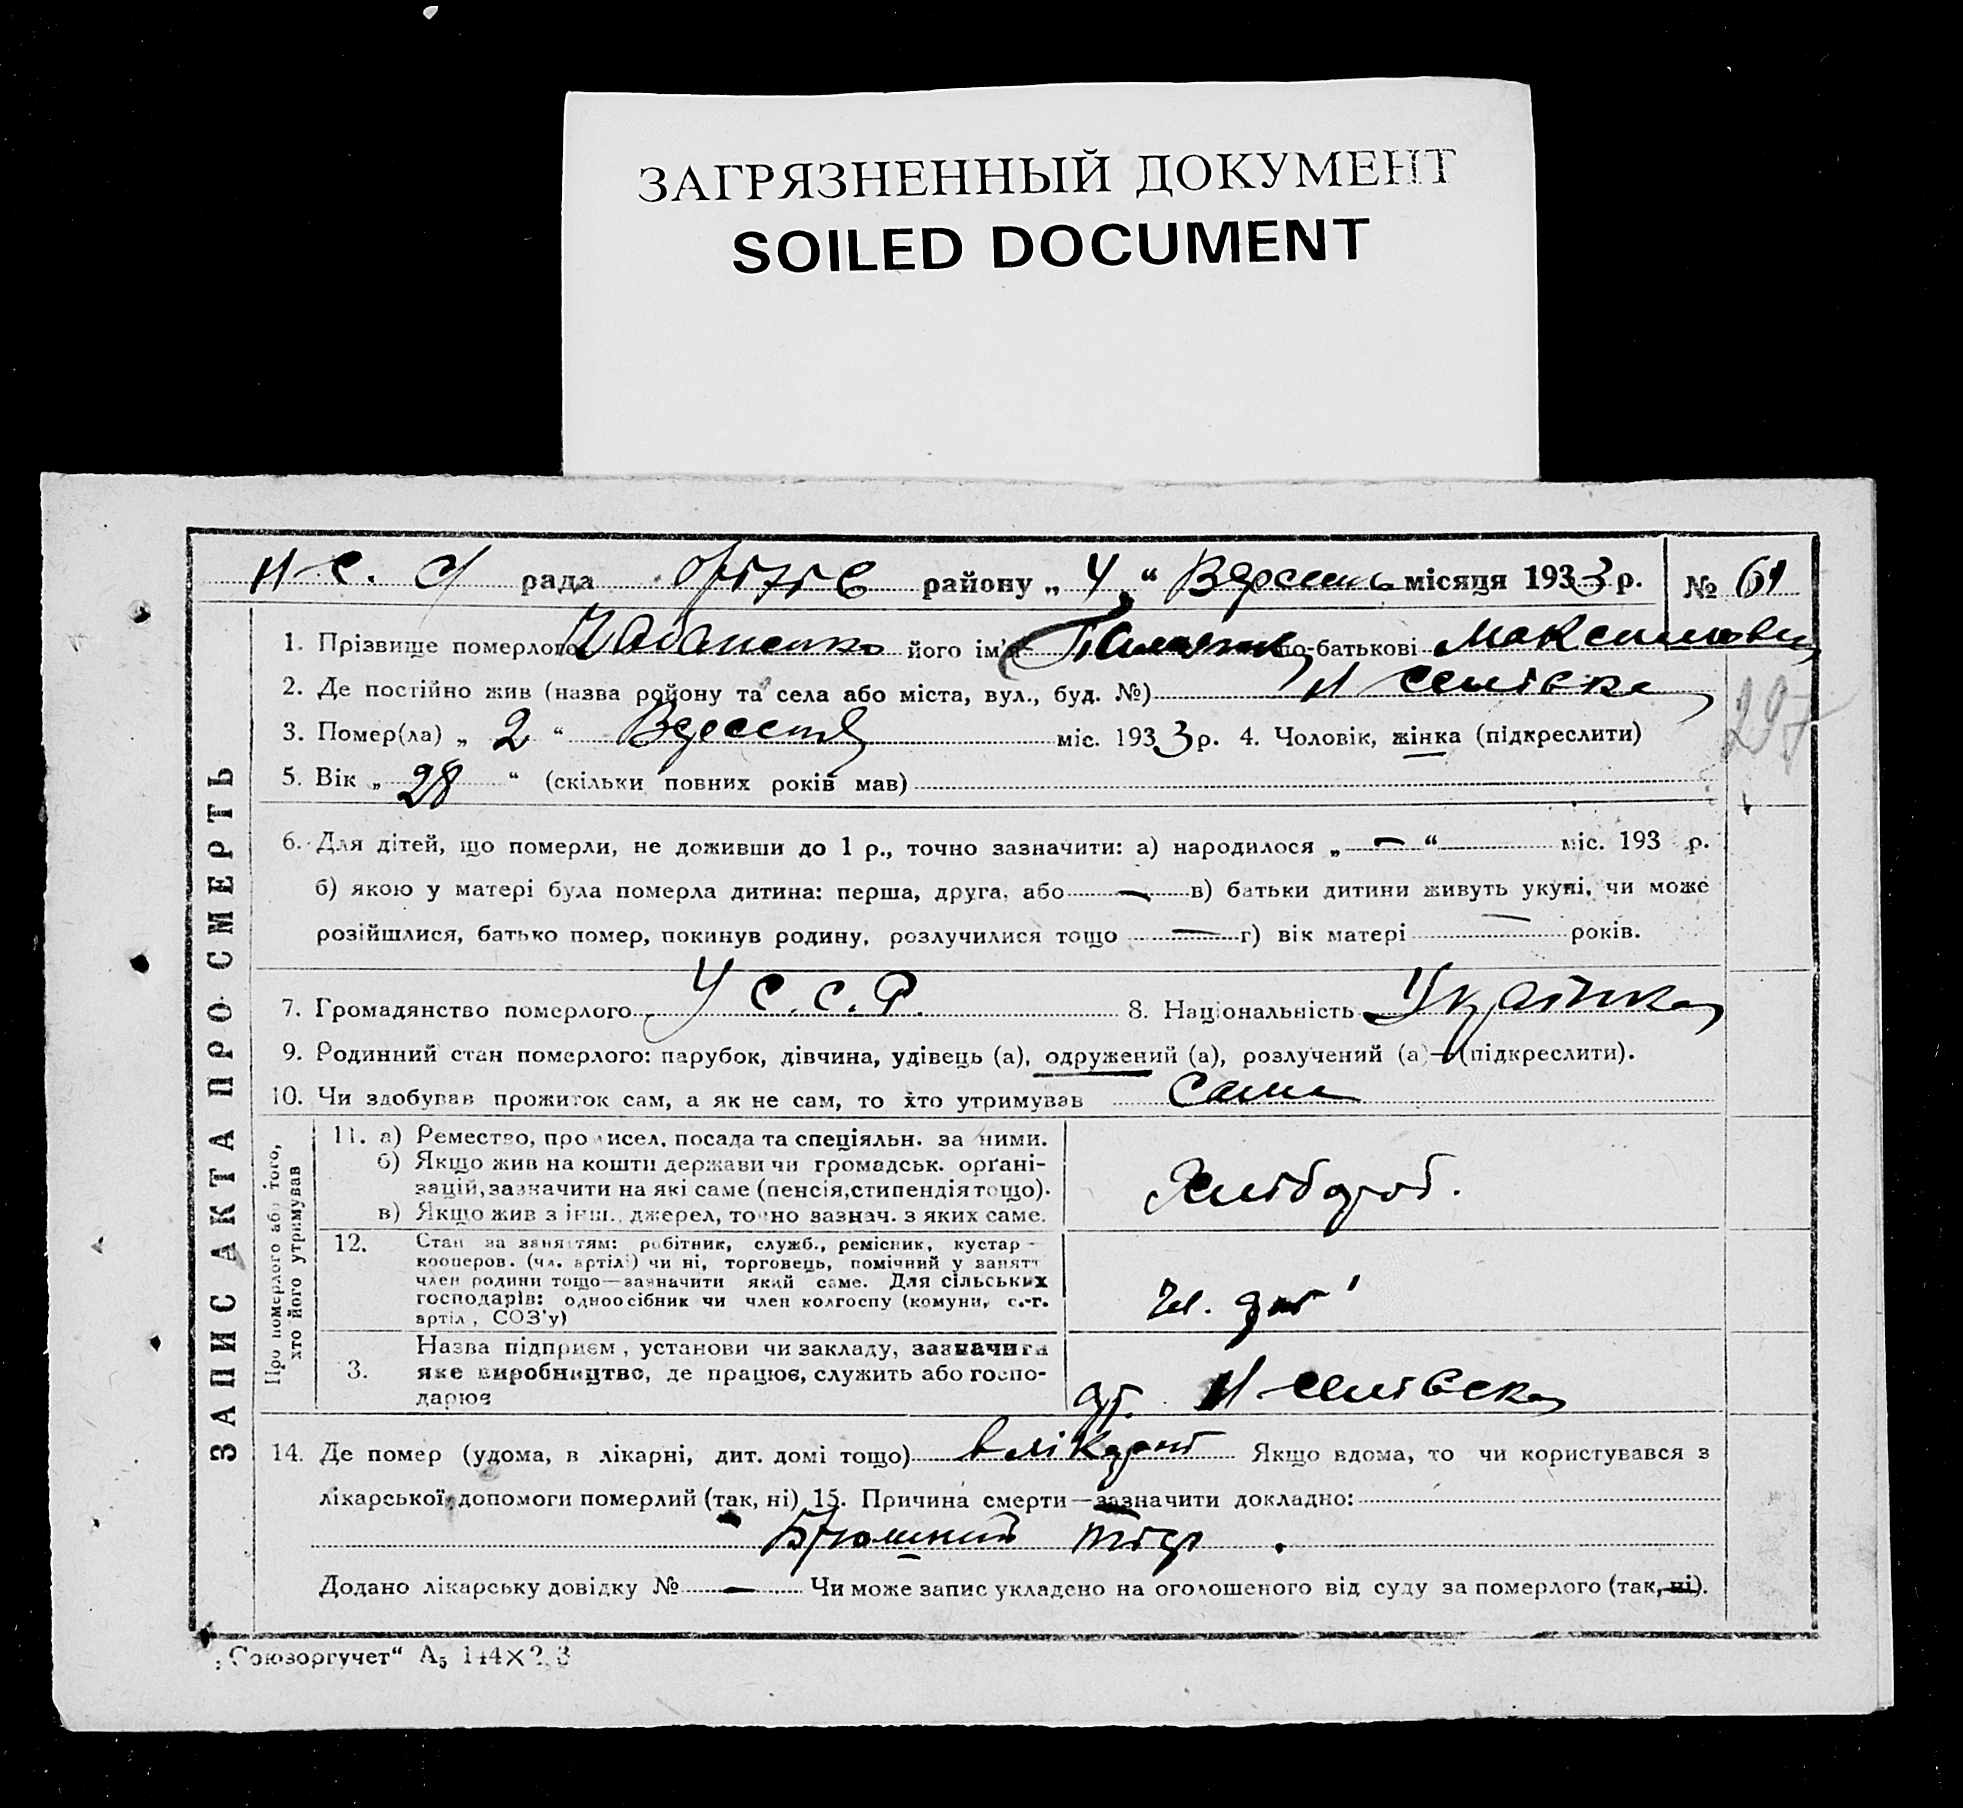 ЗАГРЯЗНЕННЫЙ ДОКУМЕНТ
SOILED DOCUMENT
ЗАПИС АКТА ПРО СМЕРТЬ
Н-С. С/ рада району „ 4 “ Вересень місяця 1933 р. № 61
1. Прізвище померлого його ім'я по-батькові Максимовна
2. Де постійно жив (назва району та села або міста, вул., буд. №)
297
3. Помер(ла) „ 2 “ Вересня міс. 1933 р. 4. Чоловік, жінка (підкреслити)
5. Вік „ 28 “ (скільки повних років мав)
6. Для дітей, що померли, не доживши до 1 р., точно зазначити: а) народилося „ — “ міс. 193 р.
б) якою у матері була померла дитина: перша, друга, або — в) батьки дитини живуть укупі, чи може
розійшлися, батько помер, покинув родину, розлучилися тощо — г) вік матері — років.
7. Громадянство померлого У.С.С.Р. 8. Національність Українка
9. Родинний стан померлого: парубок, дівчина, удівець (а), одружений (а), розлучений (а) — (підкреслити).
10. Чи здобував прожиток сам, а як не сам, то хто утримував Сама
Про померлого або того,
хто його утримував
11. а) Ремество, промисел, посада та спеціяльн. за ними.
б) Якщо жив на кошти держави чи громадськ. орґані-
зацій, зазначити на які саме (пенсія, стипендія тощо).
в) Якщо жив з інш. джерел, точно зазнач. з яких саме.
Хлібороб.
12. Стан за заняттям: робітник, служб., ремісник, кустар —
кооперов. (чл. артілі) чи ні, торговець, помічний у занятт
член родини тощо — зазначити який саме. Для сільських
господарів: одноосібник чи член колгоспу (комуни, с.-г.
артіл, СОЗ'у)
чл. арт
3. Назва підприєм, установи чи закладу, зазначити
яке виробництво, де працює, служить або госпо-
дарює
14. Де помер (удома, в лікарні, дит. домі тощо) в лікарні Якщо вдома, то чи користувався з
лікарської допомоги померлий (так, ні) 15. Причина смерти — зазначити докладно:
Брюшний тіф.
Додано лікарську довідку № — Чи може запис укладено на оголошеного від суду за померлого (так, ні).
„Союзоргучет“ А5 144×2